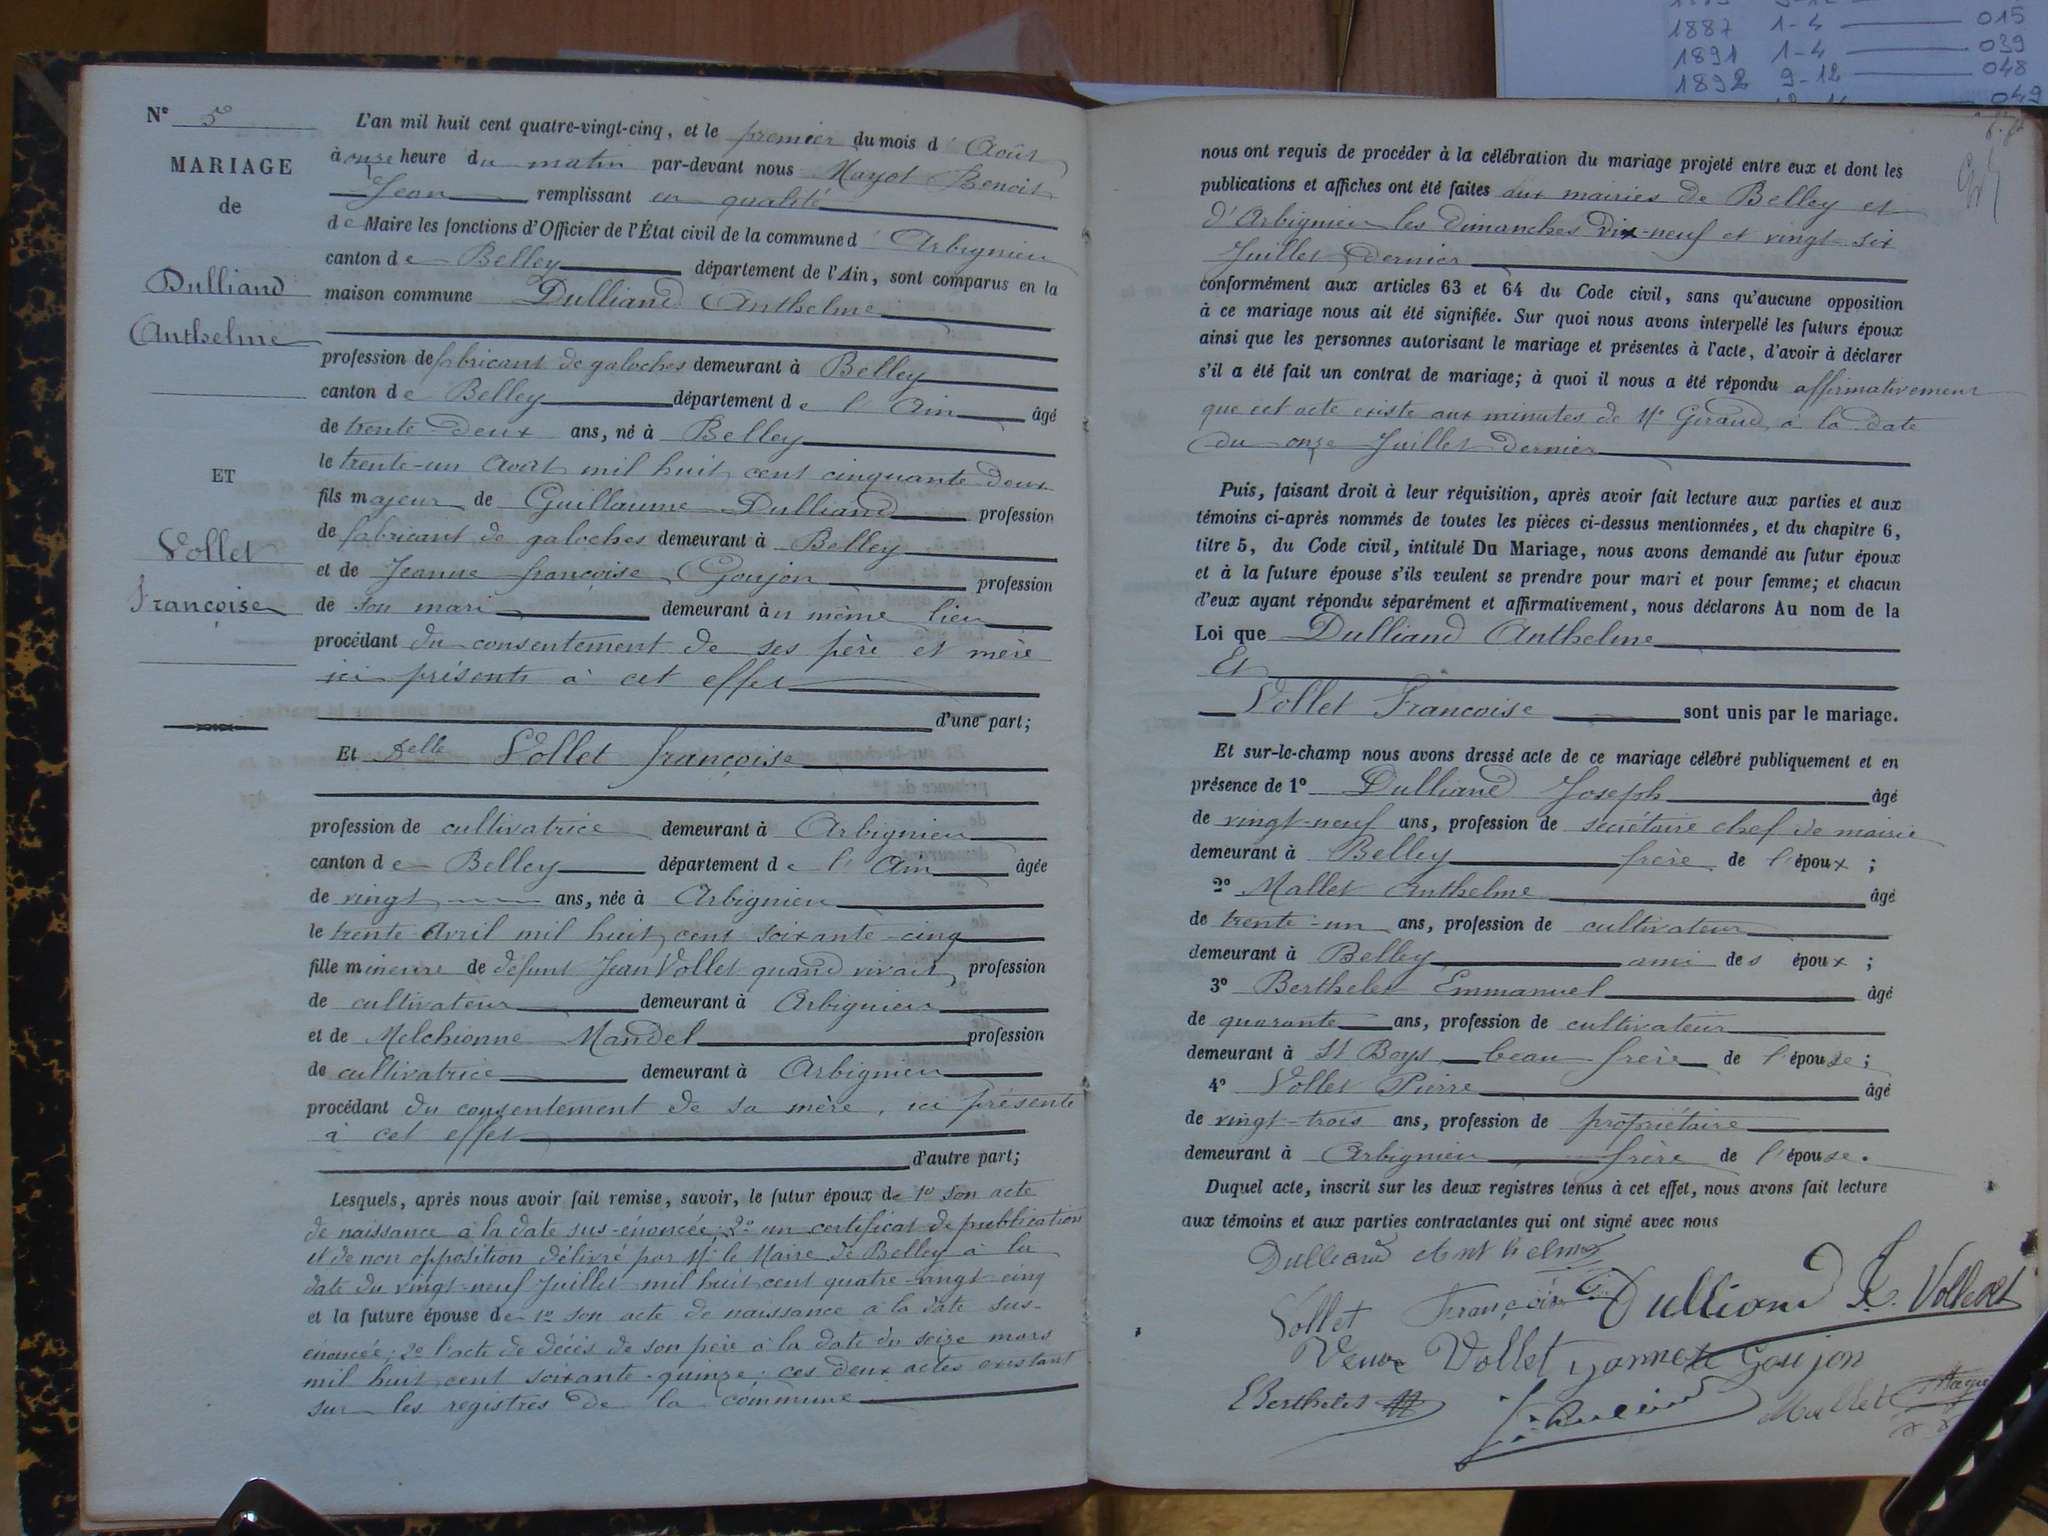 1887 1-4 015
1891 1-4 039
1892 9-12 048
049
N° 5
MARIAGE
de
Dulliand
Anthelme
ET
Vollet
Françoise
L'an mil huit cent quatre-vingt-cinq, et le premier du mois d'Août
à onze heure du matin par-devant nous Mayot Benoit
Jean remplissant en qualité
de Maire les fonctions d'Officier de l'État civil de la commune d'Arbignieu
canton de Belley département de l'Ain, sont comparus en la
maison commune Dulliand Anthelme
profession de fabricant de galoches demeurant à Belley
canton de Belley département de l'Ain âgé
de trente deux ans, né à Belley
le trente-un Août mil huit cent cinquante-deux
fils majeur de Guillaume Dulliand profession
de fabricant de galoches demeurant à Belley
et de Jeanne françoise Goujon profession
de son mari demeurant au même lieu
procédant du consentement de ses père et mère
ici présents à cet effet
d'une part;
Et Delle Vollet françoise
profession de cultivatrice demeurant à Arbignieu
canton de Belley département de l'Ain âgée
de vingt ans, née à Arbignieu
le trente Avril mil huit cent soixante-cinq
fille mineure de défunt Jean Vollet quand vivait profession
de cultivateur demeurant à Arbignieu
et de Melchionne Mandel profession
de cultivatrice demeurant à Arbignieu
procédant du consentement de sa mère, ici présente
à cet effet
d'autre part;
Lesquels, après nous avoir fait remise, savoir, le futur époux de 1° son acte
de naissance à la date sus-énoncée; 2° un certificat de publication
et de non opposition délivré par Mr le Maire de Belley à la
date du vingt-neuf Juillet mil huit cent quatre-vingt-cinq
et la future épouse de 1° son acte de naissance à la date sus-
énoncée; 2° l'acte de décès de son père à la date du seize mars
mil huit cent soixante-quinze; ces deux actes existant
sur les registres de la commune
nous ont requis de procéder à la célébration du mariage projeté entre eux et dont les
publications et affiches ont été faites aux mairies de Belley et
d'Arbignieu les dimanches dix-neuf et vingt-six
Juillet dernier
conformément aux articles 63 et 64 du Code civil, sans qu'aucune opposition
à ce mariage nous ait été signifiée. Sur quoi nous avons interpellé les futurs époux
ainsi que les personnes autorisant le mariage et présentes à l'acte, d'avoir à déclarer
s'il a été fait un contrat de mariage; à quoi il nous a été répondu affirmativement
que cet acte existe aux minutes de Me Giraud, à la date
du onze Juillet dernier
Puis, faisant droit à leur réquisition, après avoir fait lecture aux parties et aux
témoins ci-après nommés de toutes les pièces ci-dessus mentionnées, et du chapitre 6,
titre 5, du Code civil, intitulé Du Mariage, nous avons demandé au futur époux
et à la future épouse s'ils veulent se prendre pour mari et pour femme; et chacun
d'eux ayant répondu séparément et affirmativement, nous déclarons Au nom de la
Loi que Dulliand Anthelme
Et
Vollet Françoise sont unis par le mariage.
Et sur-le-champ nous avons dressé acte de ce mariage célébré publiquement et en
présence de 1° Dulliand Joseph âgé
de vingt-neuf ans, profession de secrétaire chef de mairie
demeurant à Belley frère de l'époux;
2° Mallet Anthelme âgé
de trente-un ans, profession de cultivateur
demeurant à Belley ami des époux;
3° Berthelet Emmanuel âgé
de quarante ans, profession de cultivateur
demeurant à St Boys beau-frère de l'épouse;
4° Vollet Pierre âgé
de vingt-trois ans, profession de propriétaire
demeurant à Arbignieu frère de l'épouse.
Duquel acte, inscrit sur les deux registres tenus à cet effet, nous avons fait lecture
aux témoins et aux parties contractantes qui ont signé avec nous
Dulliand Anthelme
Vollet Françoise Dulliand Vollet
Veuve Vollet Goujon
E Berthelet Mallet